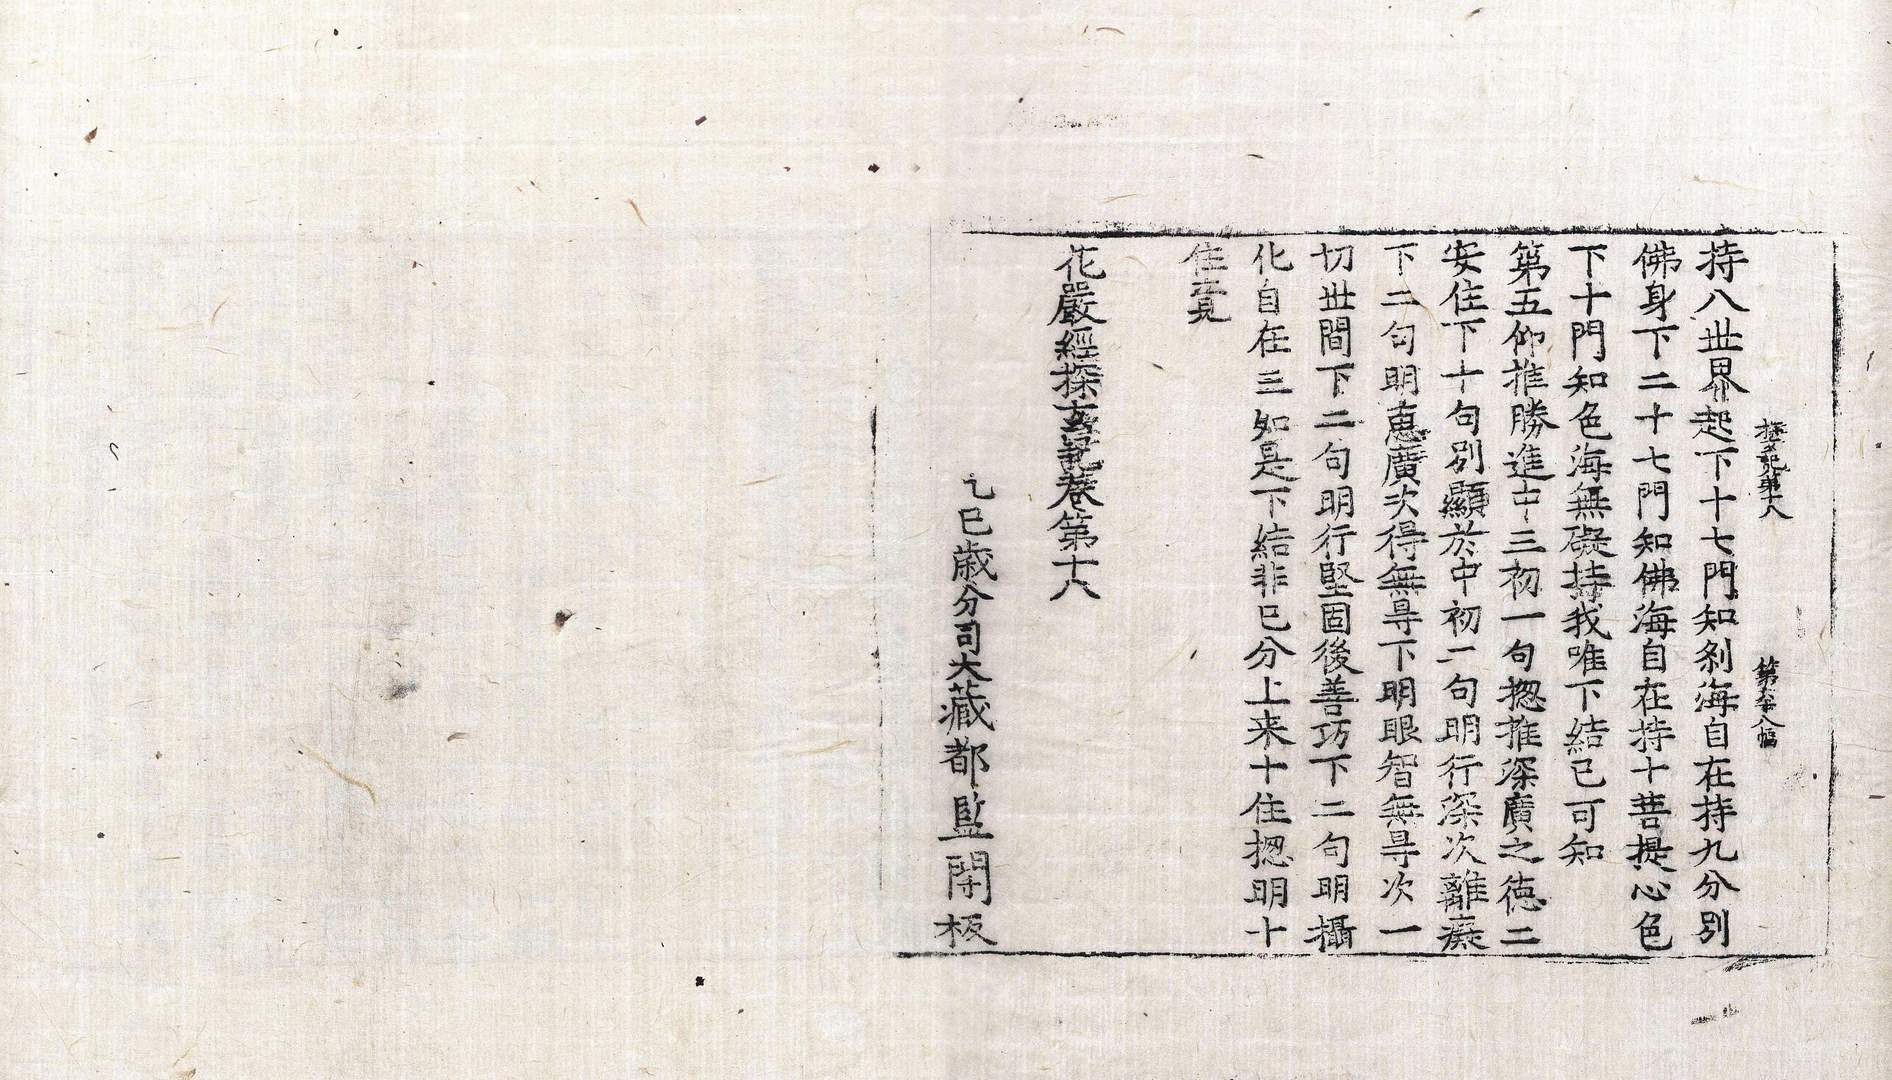 持八世界起下十七門知刹海自在持九分別
佛身下二十七門知佛海自在持十菩提心色
下十門知色海無礙持我唯下結已可知
第五仰推勝進中三初一句揔推深廣之徳二
安住下十句別顯於中初二句明行深次離癡
下二句明恵廣次得無㝵下明眼智無㝵次一
切世間下二句明行堅固後善巧下二句明攝
化自在三如是下結非已分上来十住揔明十
住竟
花嚴經探玄記卷第十八
乙巳歳分司大藏都監開板